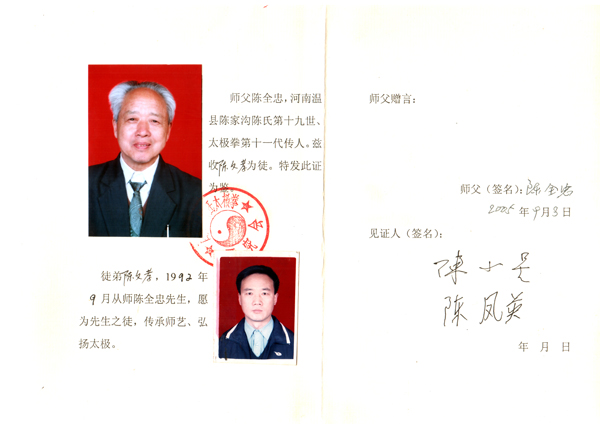 师父陈全忠，河南温
县陈家沟陈氏第十九世、
太极拳第十一代传人。兹
收陈文孝为徒。特发此证
为鉴。
太极拳
徒弟陈文孝，1992 年
9 月从师陈全忠先生，愿
为先生之徒，传承师艺、弘
扬太极。
师父赠言：
师父（签名）：陈全忠
2005 年 9月3日
见证人（签名）：
陳小星
陈凤英
年 月 日